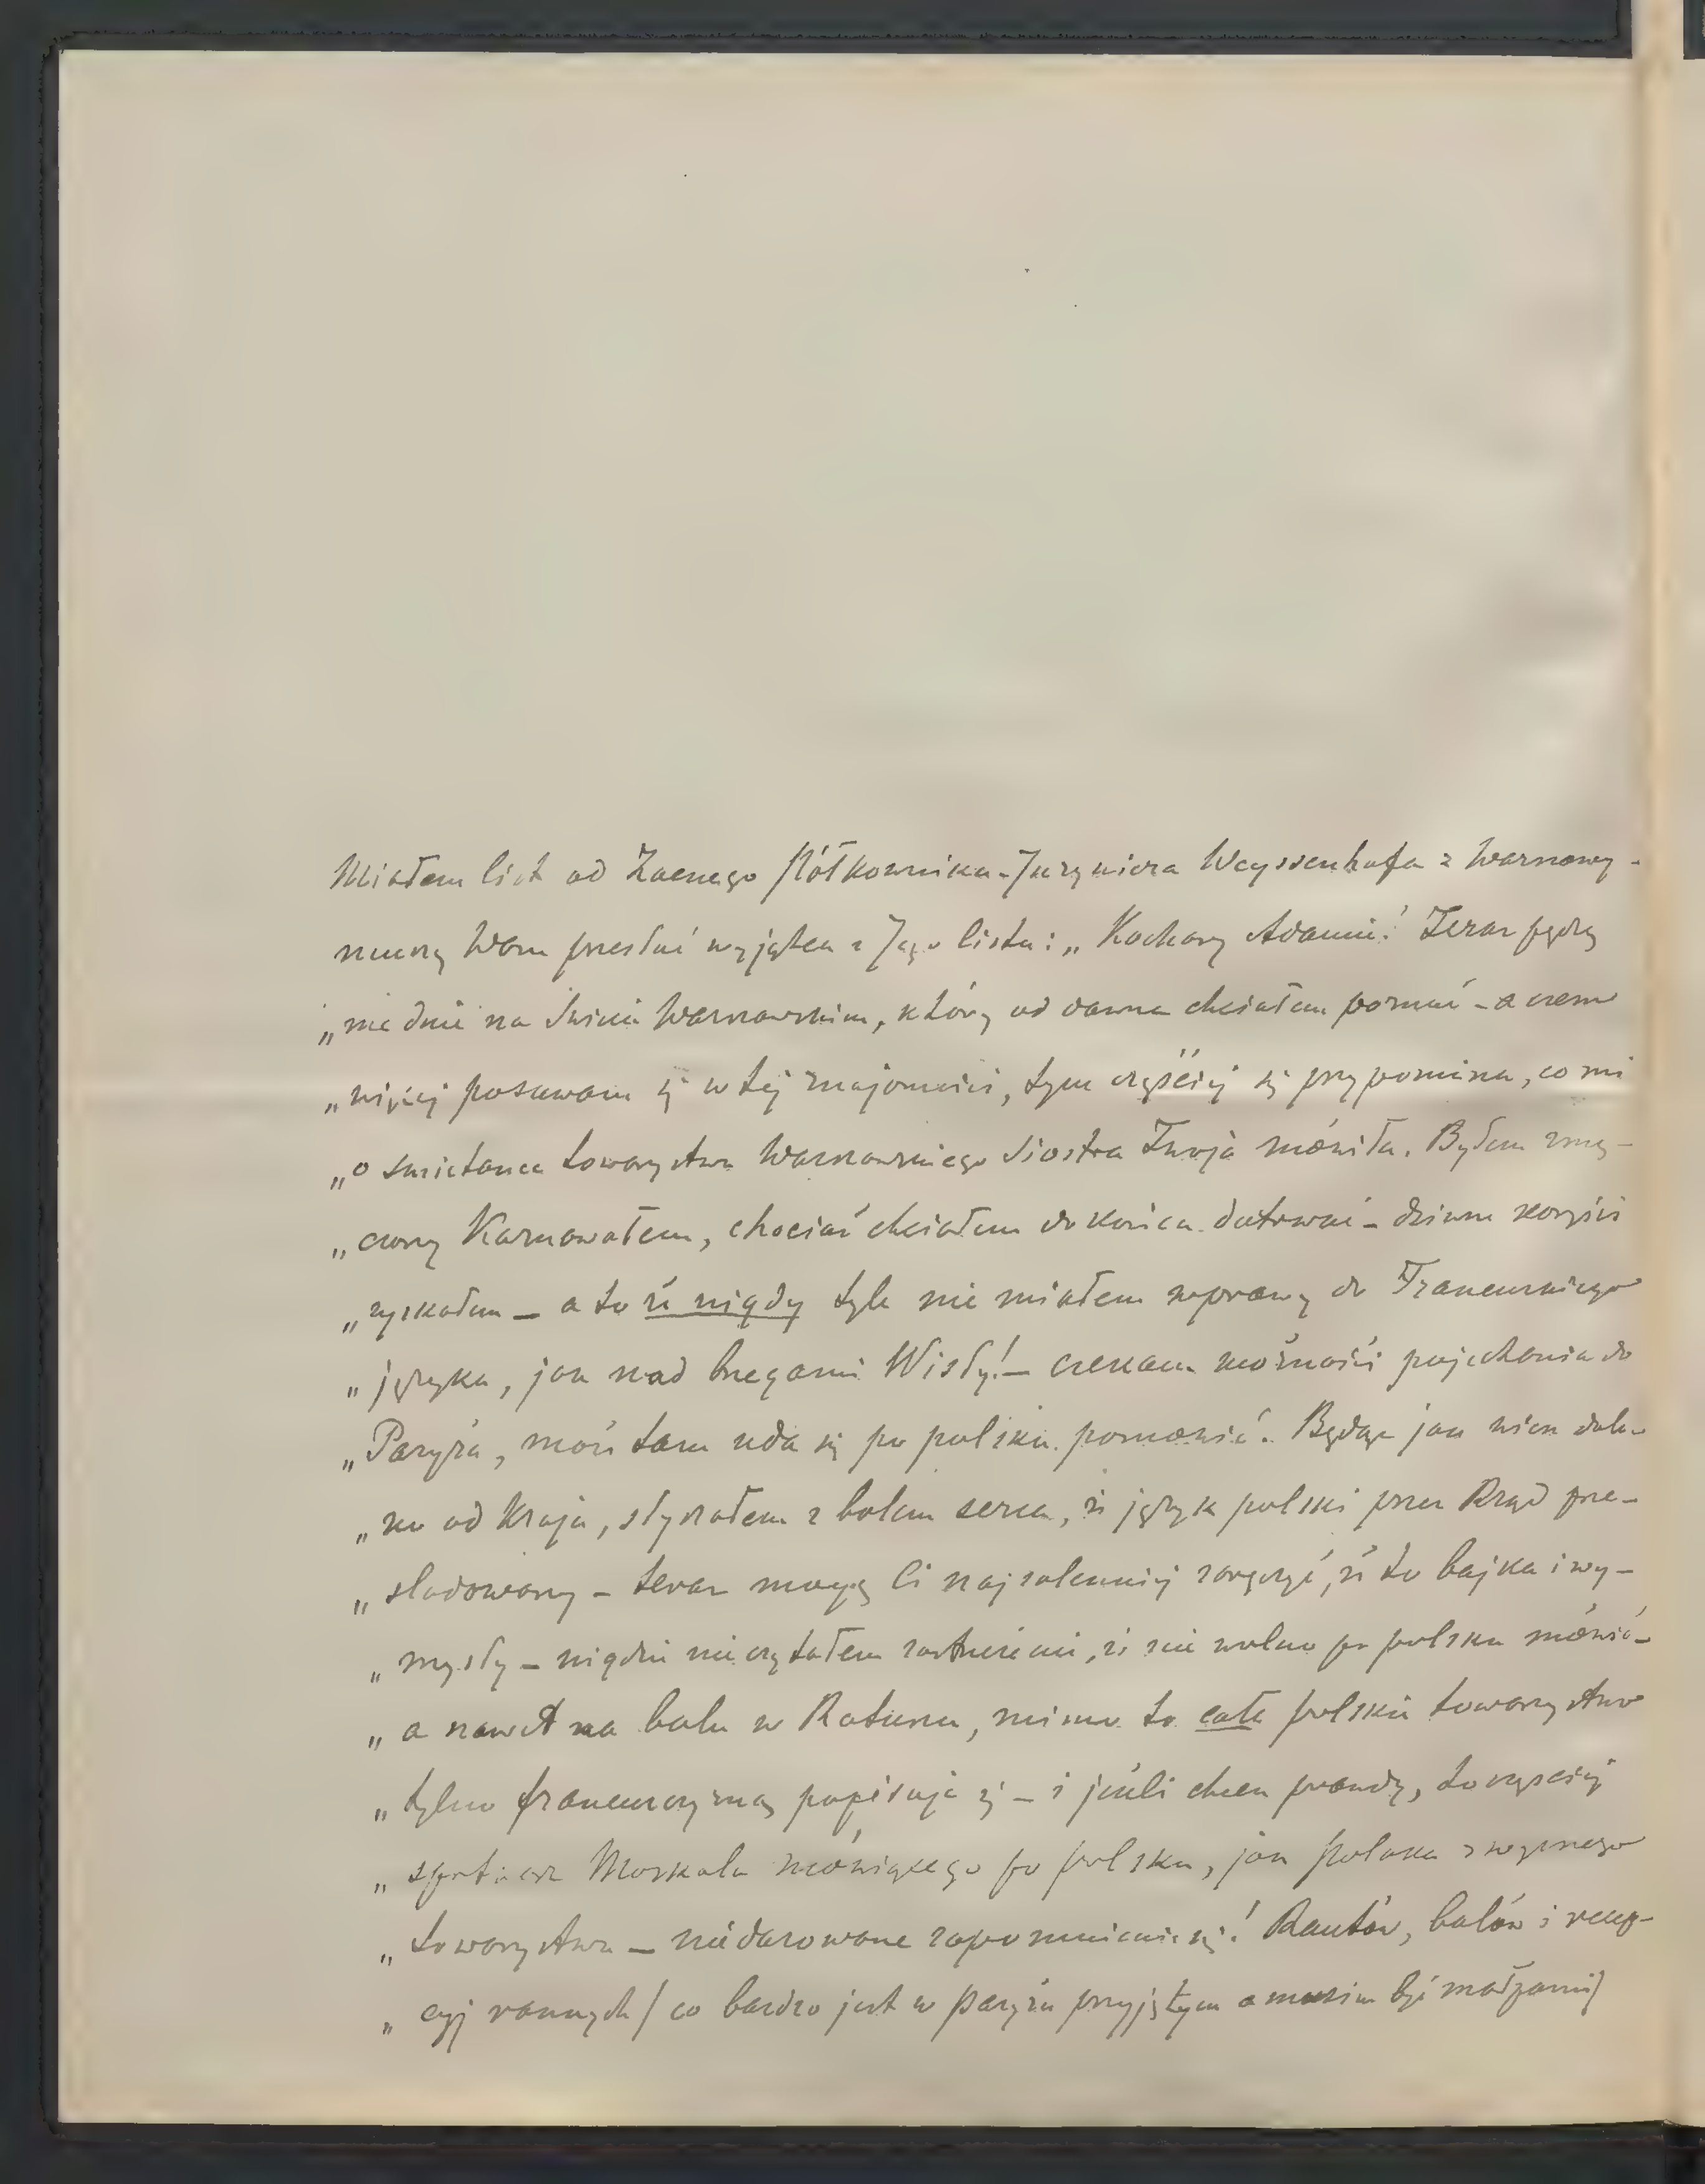 Miałem list od Zacnego Półkownika-Inżyniera Weyssenhofa z Warszawy -
muszę Wam przesłać wyjątek z Jego listu: „Kochany Adamie! Teraz pędzę
„me dnie na Świecie Warszawskim, który od dawna chciałem poznać - a czem
„więcej posuwam się w tej znajomości, tym częściej się przypomina, co mi
„o śmietance towarzystwa Warszawskiego Siostra Twoja mówiła. Byłem zmę-
„czony Karnawałem, chociaż chciałem do końca dotrwać - dziwne korzyści
„zyskałem - a to że nigdy tyle nie miałem wprawy do Francuskiego
„języka, jak nad brzegami Wisły! - czekam możności pojechania do
„Paryża, może tam uda się po polsku pomówić. Będąc jak wiesz dale-
„ko od Kraju, słyszałem z bolem serca, że język polski przez Rząd prze-
„sladowany - teraz mogę Ci najsolenniej zaręczyć, że to bajka i wy-
„mysły - nigdzie nie czytałem zastrzeżenia, że nie wolno po polsku mówić -
„a nawet na balu w Ratuszu, mimo to całe polskie towarzystwo
„tylko francuzczyzną popisuje się - i jeżeli chcesz prawdy, to częściej
„spotkasz Moskala mówiącego po polsku, jak Polaka z wyższego
„towarzystwa - niedarowane zapomnienie się! Rautów, balów i recep-
„cyj rannych / co bardzo jest w Paryżu przyjętym a musim być małpami/